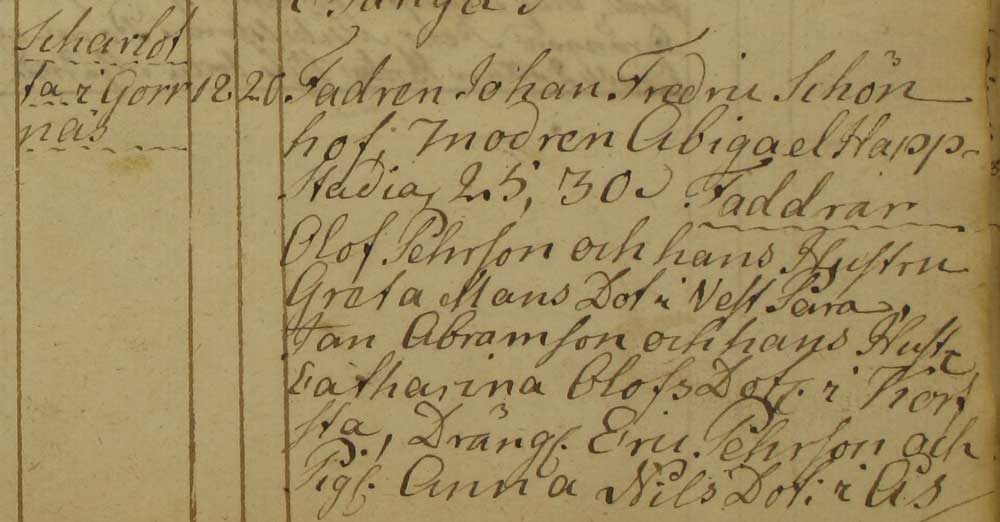 Scharlot
ta i Gorr
näs
18 20
Fadren Johan Fredric Schön
hof, modren Abigael Happ-
stadia, 25, 30. Faddrar
Olof Pehrson och hans Hustru
Greta Mans Dot: i Vest Para,
Jan Abramson och hans Hust:
Catharina Olofs Dot: i Kors
sta, Dräng: Eric Pehrson och
Pig: Anna Nils Dot: i Ås